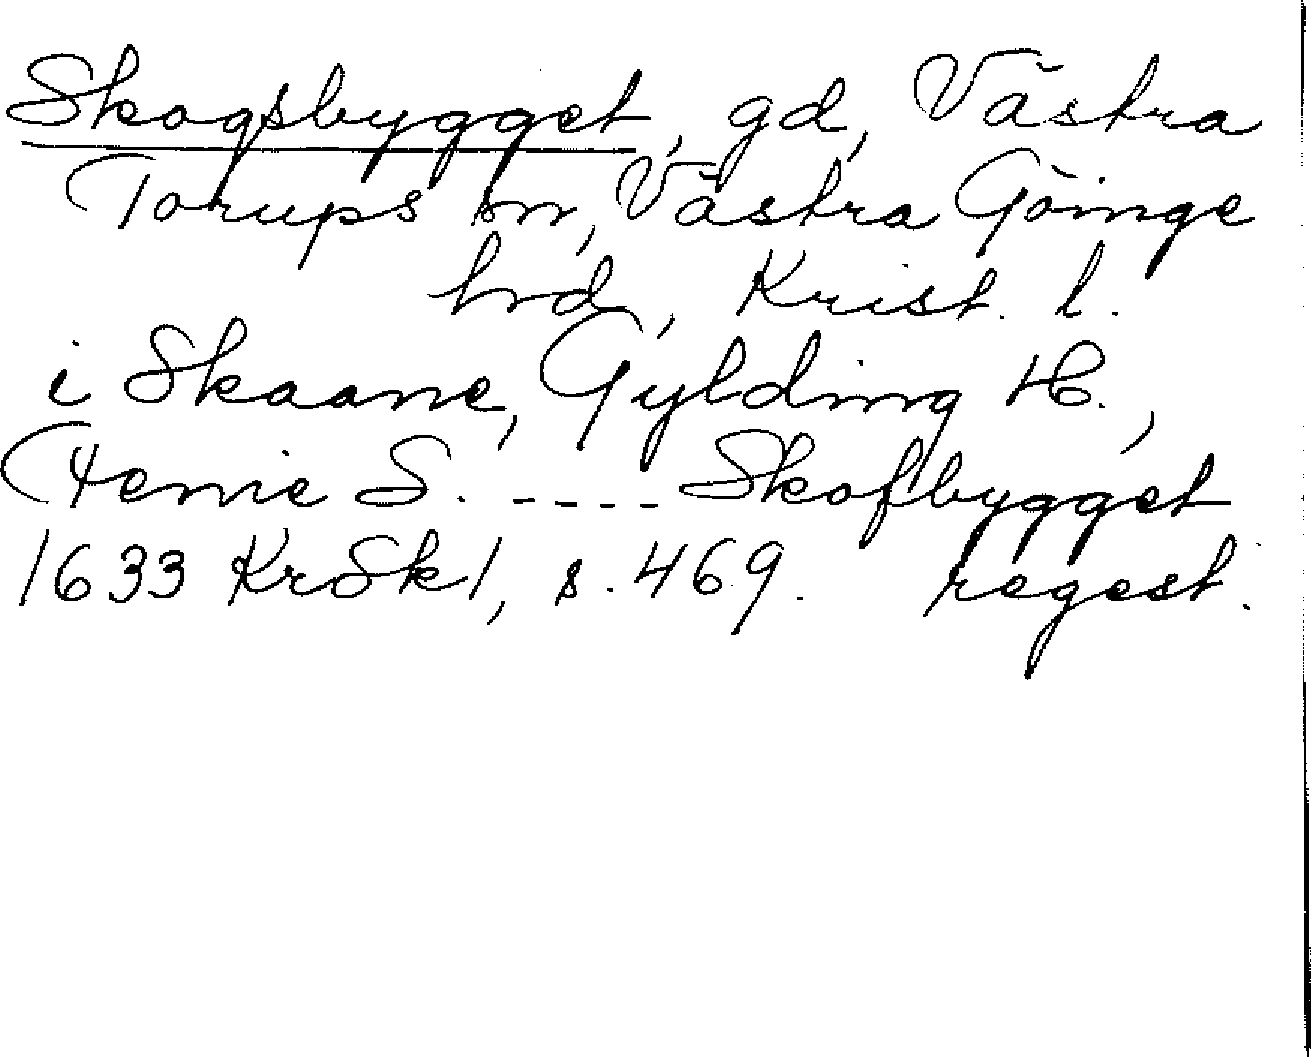 Skogsbygget, gd, Västra
Torups sn, Västra Göinge
hrd, Krist. l.
i Skaane, Gylding H.,
S. ---- Skofbygget
1633 KrSk1, s. 469. regest.